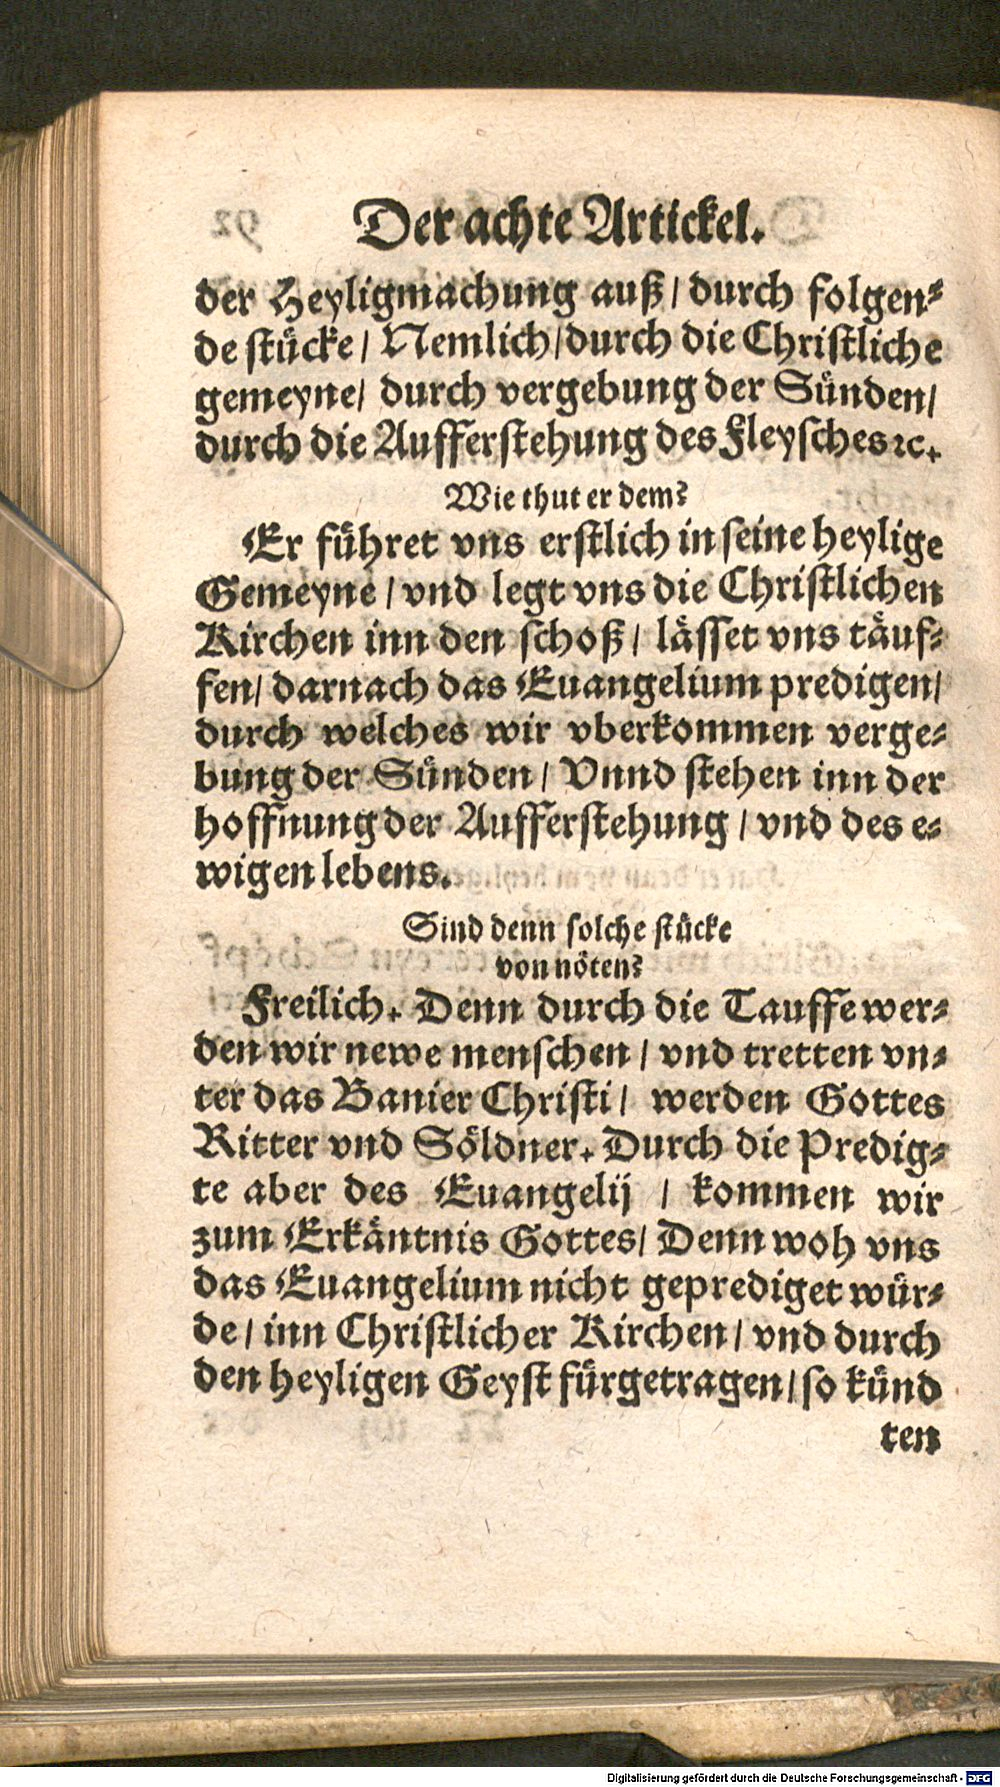 Der achte Artickel.
der Heyligmachung auß / durch folgen⸗
de stuͤcke / Nemlich / durch die Christliche
gemeyne / durch vergebung der Suͤnden /
durch die Aufferstehung des Fleysches ꝛc.
Wie thut er dem?
Er fuͤhret vns erstlich in seine heylige
Gemeyne / vnd legt vns die Christlichen
Kirchen inn den schoß / laͤsset vns taͤuf⸗
fen / darnach das Euangelium predigen /
durch welches wir vberkommen verge⸗
bung der Suͤnden / Vnnd stehen inn der
hoffnung der Aufferstehung / vnd des e⸗
wigen lebens.
Sind denn solche stuͤcke
von noͤten?
Freilich. Denn durch die Tauffe wer⸗
den wir newe menschen / vnd tretten vn⸗
ter das Banier Christi / werden Gottes
Ritter vnd Soͤldner. Durch die Predig⸗
te aber des Euangelij / kommen wir
zum Erkaͤntnis Gottes / Denn woh vns
das Euangelium nicht geprediget wuͤr⸗
de / inn Christlicher Kirchen / vnd durch
den heyligen Geyst fuͤrgetragen / so kuͤnd
ten
Digitalisierung gefördert durch die Deutsche Forschungsgemeinschaft - DFG